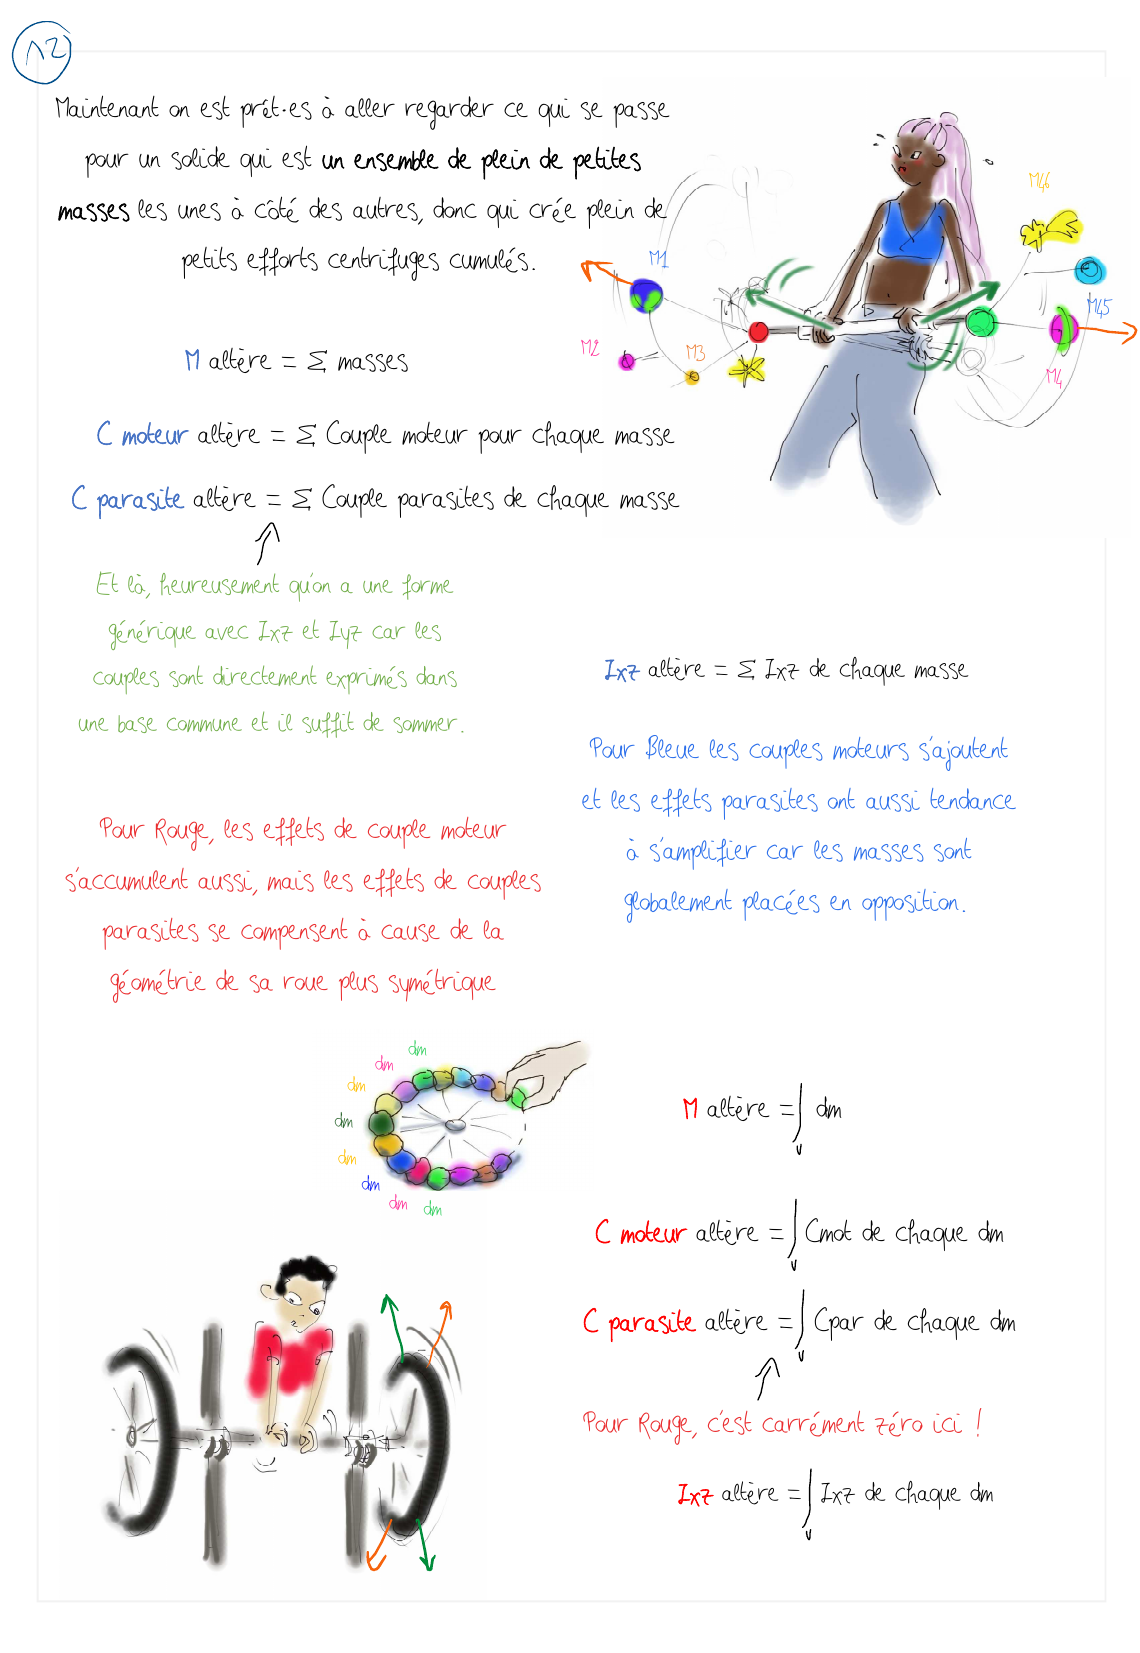 12
Maintenant on est prêt·es à aller regarder ce qui se passe
pour un solide qui est un ensemble de plein de petites
masses les unes à côté des autres, donc qui crée plein de
petits efforts centrifuges cumulés.
M46
M1
M45
M2
M3
M4
M altère = Σ masses
C moteur altère = Σ Couple moteur pour chaque masse
C parasite altère = Σ Couple parasites de chaque masse
Et là, heureusement qu'on a une forme
générique avec Ixz et Iyz car les
couples sont directement exprimés dans
une base commune et il suffit de sommer.
Ixz altère = Σ Ixz de chaque masse
Pour Bleue les couples moteurs s'ajoutent
et les effets parasites ont aussi tendance
à s'amplifier car les masses sont
globalement placées en opposition.
Pour Rouge, les effets de couple moteur
s'accumulent aussi, mais les effets de couples
parasites se compensent à cause de la
géométrie de sa roue plus symétrique
dm
dm
dm
dm
dm
dm
dm
dm
M altère = ∫ dm
C moteur altère = ∫ Cmot de chaque dm
C parasite altère = ∫ Cpar de chaque dm
Pour Rouge, c'est carrément zéro ici !
Ixz altère = ∫ Ixz de chaque dm